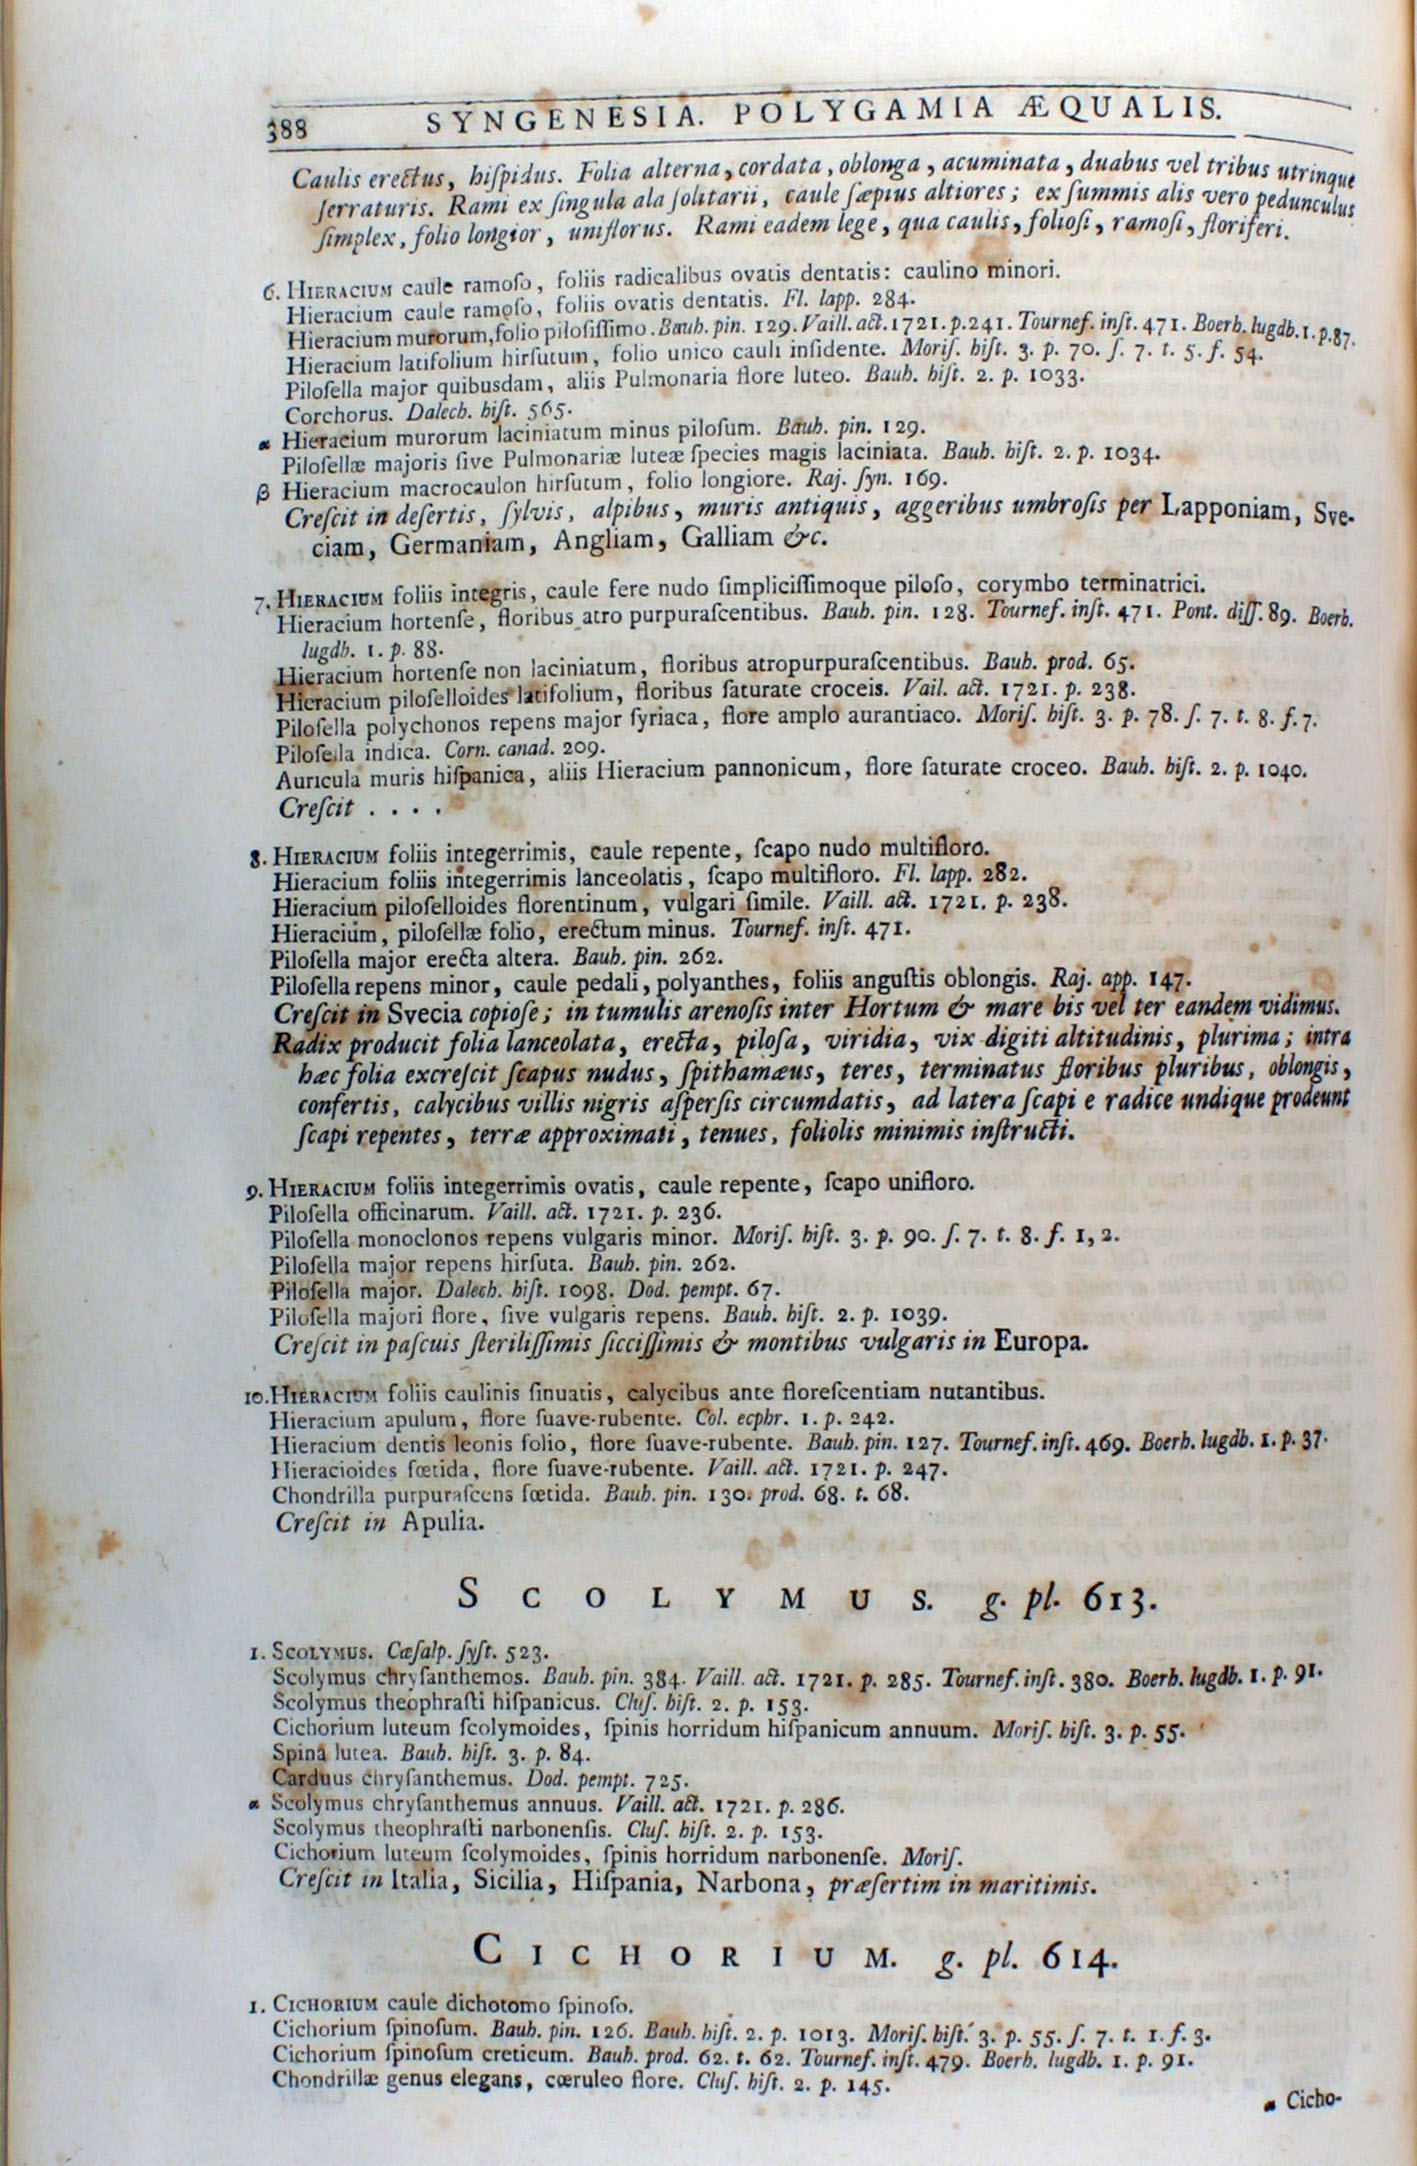 388 SYNGENESIA. POLYGAMIA ÆQUALIS.
Caulis erectus, hiſpidus. Folia alterna, cordata, oblonga, acuminata, duabus vel tribus utrinque
ſerraturis. Rami ex ſingula ala ſolitarii, caule ſæpius altiores; ex ſummis alis vero pedunculus
ſimplex, folio longior, uniflorus. Rami eadem lege, qua caulis, folioſi, ramoſi, floriferi.
6. HIERACIUM caule ramoſo, foliis radicalibus ovatis dentatis: caulino minori.
Hieracium caule ramoſo, foliis ovatis dentatis. Fl. lapp. 284.
Hieracium murorum, folio piloſiſſimo. Bauh. pin. 129. Vaill. act. 1721. p. 241. Tournef. inſt. 471. Boerh. lugdb. 1. p. 87.
Hieracium latifolium hirſutum, folio unico cauli inſidente. Moriſ. hiſt. 3. p. 70. ſ. 7. t. 5. f. 54.
Piloſella major quibusdam, aliis Pulmonaria flore luteo. Bauh. hiſt. 2. p. 1033.
Corchorus. Dalech. hiſt. 565.
α Hieracium murorum laciniatum minus piloſum. Bauh. pin. 129.
Piloſellæ majoris ſive Pulmonariæ luteæ ſpecies magis laciniata. Bauh. hiſt. 2. p. 1034.
β Hieracium macrocaulon hirſutum, folio longiore. Raj. ſyn. 169.
Creſcit in deſertis, ſylvis, alpibus, muris antiquis, aggeribus umbroſis per Lapponiam, Sve-
ciam, Germaniam, Angliam, Galliam &c.
7. HIERACIUM foliis integris, caule fere nudo ſimpliciſſimoque piloſo, corymbo terminatrici.
Hieracium hortenſe, floribus atro purpuraſcentibus. Bauh. pin. 128. Tournef. inſt. 471. Pont. diſſ. 89. Boerh.
lugdb. 1. p. 88.
Hieracium hortenſe non laciniatum, floribus atropurpuraſcentibus. Bauh. prod. 65.
Hieracium piloſelloides latifolium, floribus ſaturate croceis. Vail. act. 1721. p. 238.
Piloſella polychonos repens major ſyriaca, flore amplo aurantiaco. Moriſ. hiſt. 3. p. 78. ſ. 7. t. 8. f. 7.
Piloſella indica. Corn. canad. 209.
Auricula muris hiſpanica, aliis Hieracium pannonicum, flore ſaturate croceo. Bauh. hiſt. 2. p. 1040.
Creſcit . . . .
8. HIERACIUM foliis integerrimis, caule repente, ſcapo nudo multifloro.
Hieracium foliis integerrimis lanceolatis, ſcapo multifloro. Fl. lapp. 282.
Hieracium piloſelloides florentinum, vulgari ſimile. Vaill. act. 1721. p. 238.
Hieracium, piloſellæ folio, erectum minus. Tournef. inſt. 471.
Piloſella major erecta altera. Bauh. pin. 262.
Piloſella repens minor, caule pedali, polyanthes, foliis anguſtis oblongis. Raj. app. 147.
Creſcit in Svecia copioſe; in tumulis arenoſis inter Hortum & mare bis vel ter eandem vidimus.
Radix producit folia lanceolata, erecta, piloſa, viridia, vix digiti altitudinis, plurima; intra
hæc folia excreſcit ſcapus nudus, ſpithamæus, teres, terminatus floribus pluribus, oblongis,
confertis, calycibus villis nigris aſperſis circumdatis, ad latera ſcapi e radice undique prodeunt
ſcapi repentes, terræ approximati, tenues, foliolis minimis inſtructi.
9. HIERACIUM foliis integerrimis ovatis, caule repente, ſcapo unifloro.
Piloſella officinarum. Vaill. act. 1721. p. 236.
Piloſella monoclonos repens vulgaris minor. Moriſ. hiſt. 3. p. 90. ſ. 7. t. 8. f. 1, 2.
Piloſella major repens hirſuta. Bauh. pin. 262.
Piloſella major. Dalech. hiſt. 1098. Dod. pempt. 67.
Piloſella majori flore, ſive vulgaris repens. Bauh. hiſt. 2. p. 1039.
Creſcit in paſcuis ſteriliſſimis ſicciſſimis & montibus vulgaris in Europa.
10. HIERACIUM foliis caulinis ſinuatis, calycibus ante floreſcentiam nutantibus.
Hieracium apulum, flore ſuave-rubente. Col. ecphr. 1. p. 242.
Hieracium dentis leonis folio, flore ſuave-rubente. Bauh. pin. 127. Tournef. inſt. 469. Boerh. lugdb. 1. p. 37.
Hieracioides fœtida, flore ſuave-rubente. Vaill. act. 1721. p. 247.
Chondrilla purpuraſcens fœtida. Bauh. pin. 130. prod. 68. t. 68.
Creſcit in Apulia.
SCOLYMUS. g. pl. 613.
1. SCOLYMUS. Cæſalp. ſyſt. 523.
Scolymus chryſanthemos. Bauh. pin. 384. Vaill. act. 1721. p. 285. Tournef. inſt. 380. Boerh. lugdb. 1. p. 91.
Scolymus theophraſti hiſpanicus. Cluſ. hiſt. 2. p. 153.
Cichorium luteum ſcolymoides, ſpinis horridum hiſpanicum annuum. Moriſ. hiſt. 3. p. 55.
Spina lutea. Bauh. hiſt. 3. p. 84.
Carduus chryſanthemus. Dod. pempt. 725.
α Scolymus chryſanthemus annuus. Vaill. act. 1721. p. 286.
Scolymus theophraſti narbonenſis. Cluſ. hiſt. 2. p. 153.
Cichorium luteum ſcolymoides, ſpinis horridum narbonenſe. Moriſ.
Creſcit in Italia, Sicilia, Hiſpania, Narbona, præſertim in maritimis.
CICHORIUM. g. pl. 614.
1. CICHORIUM caule dichotomo ſpinoſo.
Cichorium ſpinoſum. Bauh. pin. 126. Bauh. hiſt. 2. p. 1013. Moriſ. hiſt. 3. p. 55. ſ. 7. t. 1. f. 3.
Cichorium ſpinoſum creticum. Bauh. prod. 62. t. 62. Tournef. inſt. 479. Boerh. lugdb. 1. p. 91.
Chondrillæ genus elegans, cœruleo flore. Cluſ. hiſt. 2. p. 145.
α Cicho-